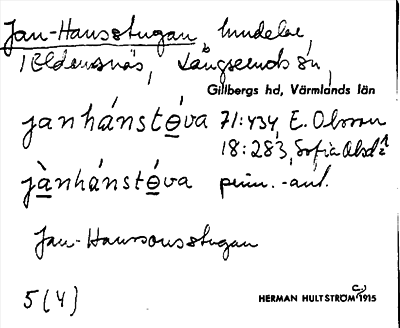 Jan-Hansstugan lundelse,
Eldensnäs, Långseruds sn,
Gillbergs hd, Värmlands län
janhánstó̲va 71:434, E. Olsson
18:283, Sofia Olsd:r
jà̲nhánstó̲va prim. -anl.
Jan-Hanssonsstugan
5 (4)
HERMAN HULTSTRÖM 1915